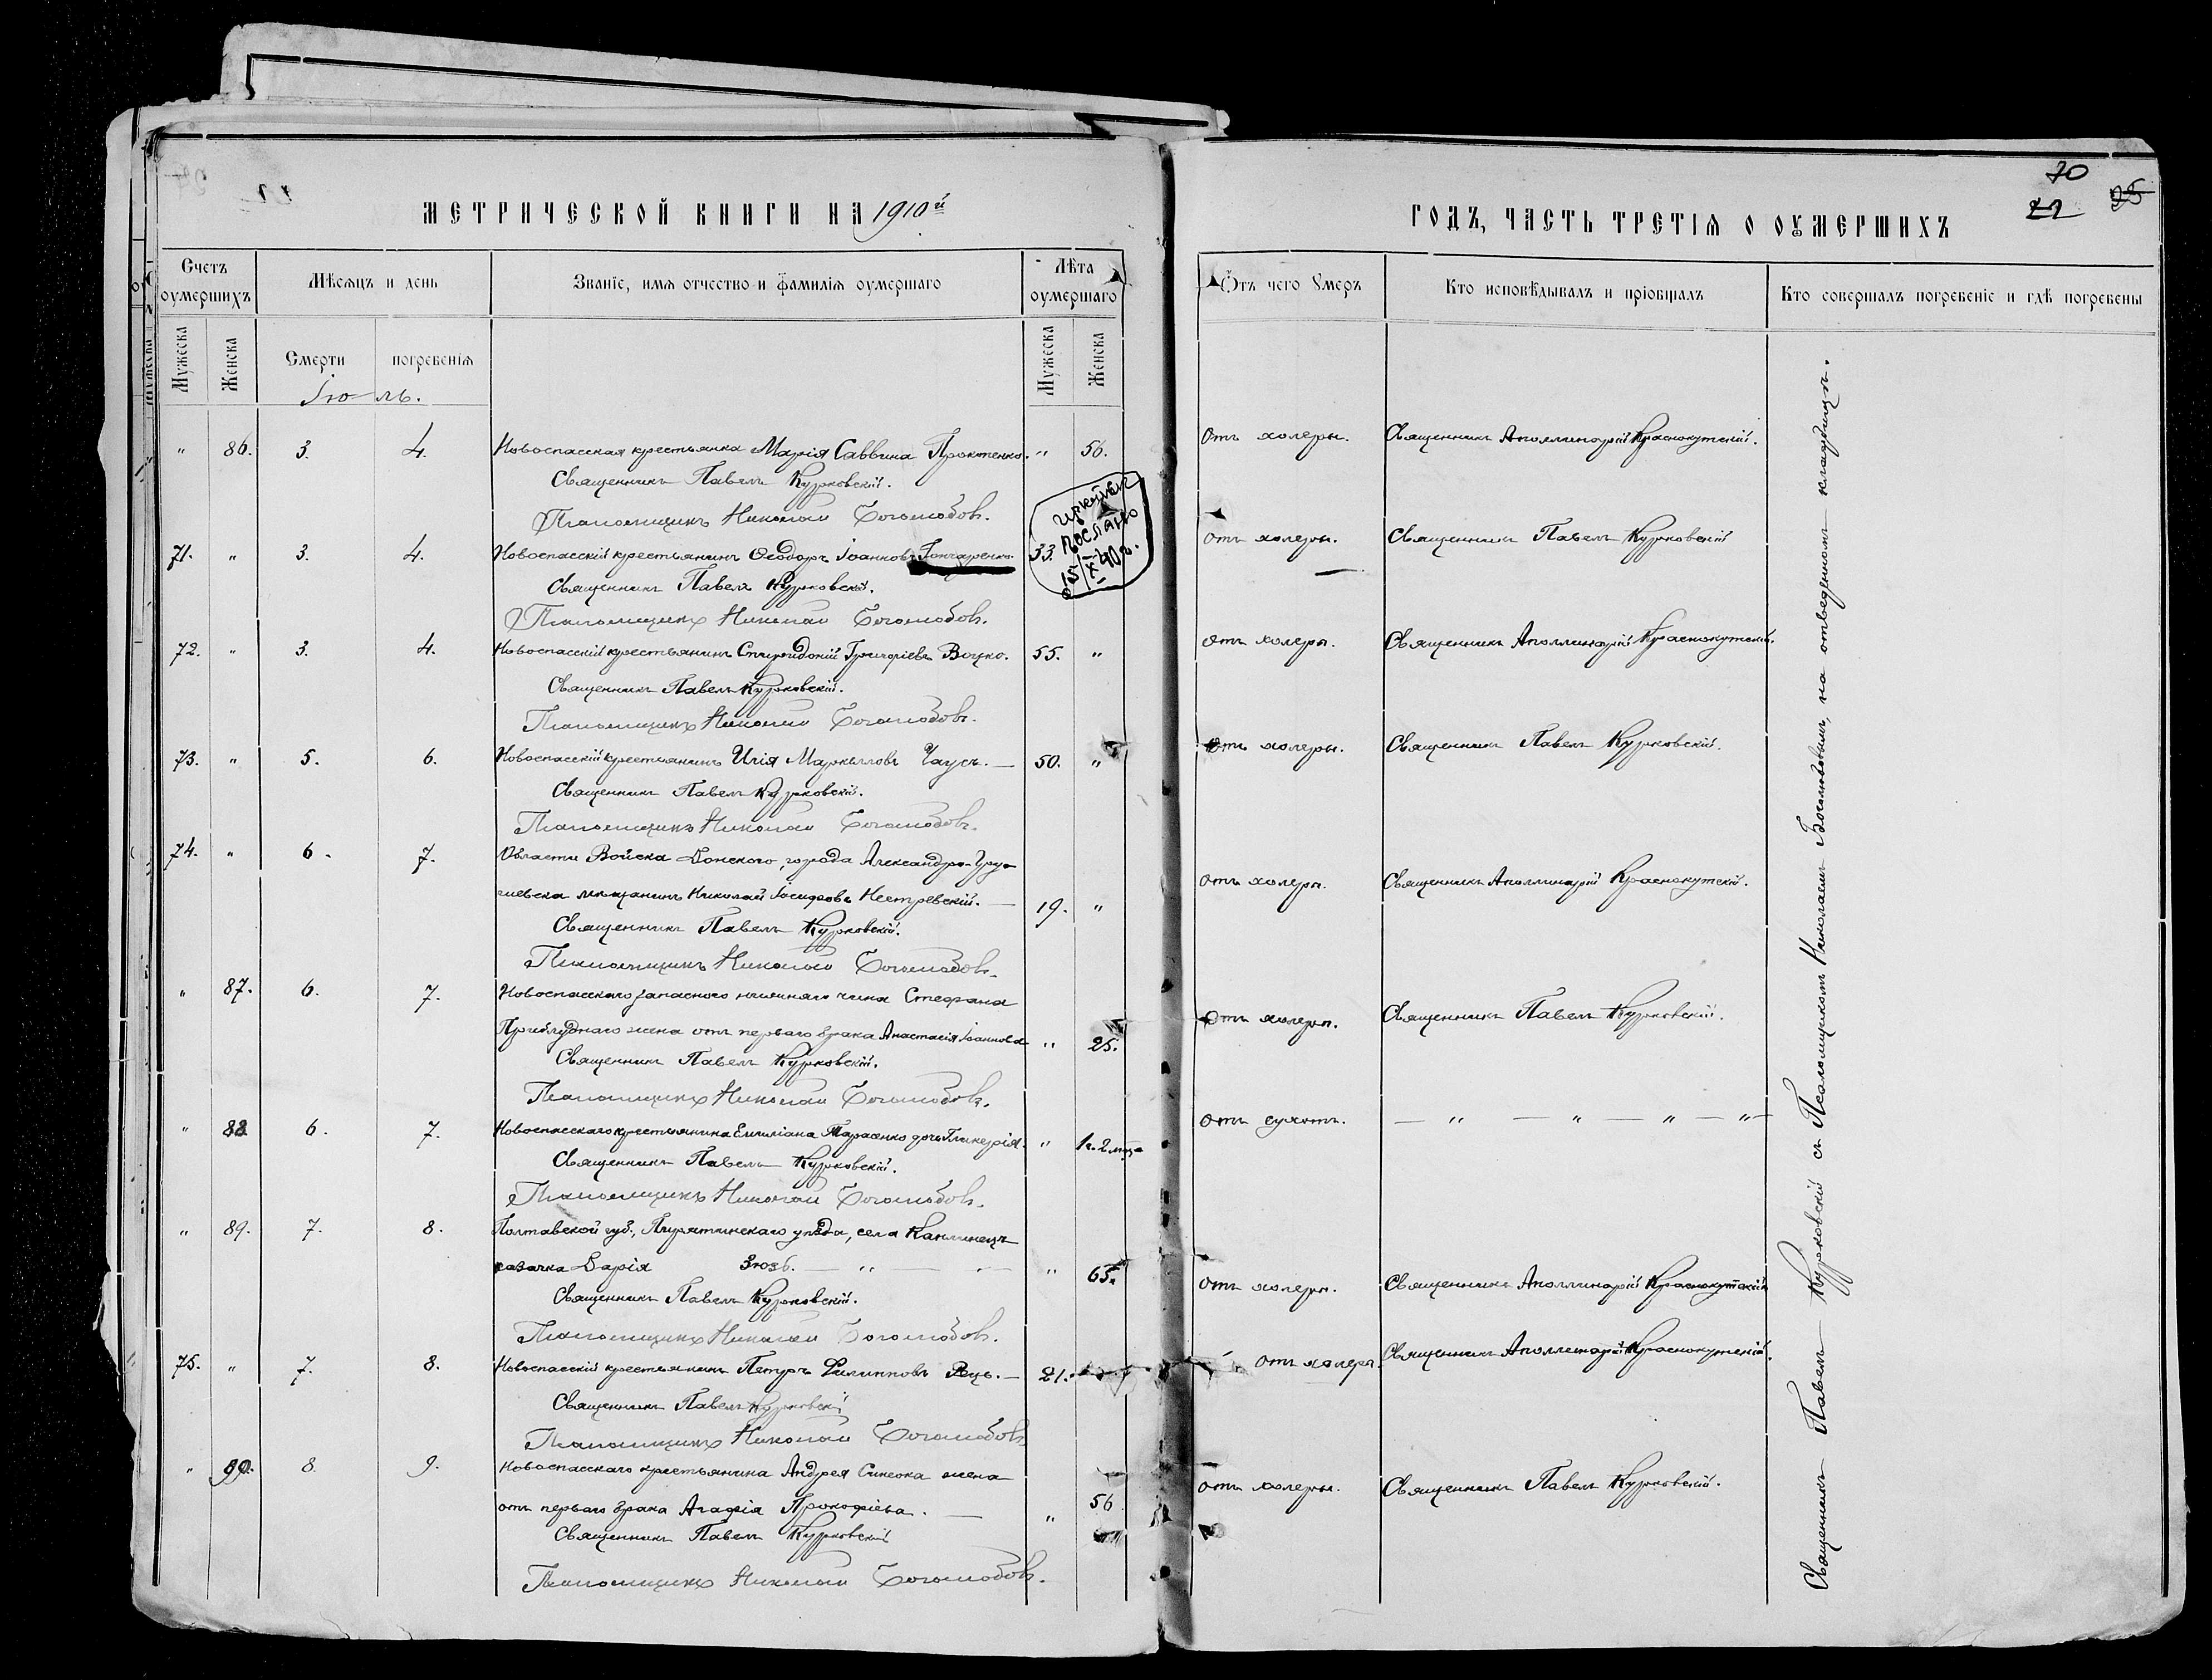 МЕТРИЧЕСКОЙ КНИГИ НА 1910й
ГОДЪ, ЧАСТЬ ТРЕТІѦ О ОУМЕРШИХЪ
70
22
95
Счетъ оумершихъ
Мѣсѧцъ и день
Званіе, имѧ отчество и фамилїѧ оумершаго
Лѣта оумершаго
Ѿтъ чего Умеръ
Кто исповѣдывалъ и прїобщалъ
Кто совершалъ погребеніе и гдѣ погребены
Мужеска
Женска
Смерти
погребенїѧ
Мужеска
Женска
Іюль.
" 86. 3. 4. Новоспасская крестьянка Марія Саввина Проктенко. " 56. Отъ холеры. Священникъ Аполлинарій Краснокутскій.
Священникъ Павелъ Курковскій.
Псаломщикъ Николай Боголюбовъ.
71. " 3. 4. Новоспасскій крестьянинъ Ѳеодоръ Іоанновъ Гончаренко. 33. Отъ холеры. Священникъ Павелъ Курковскій
послано
15/X 40г.
Священникъ Павелъ Курковскій.
Псаломщикъ Николай Боголюбовъ.
72. " 3. 4. Новоспасскій крестьянинъ Спиридоній Григоріевъ Воцко. 55. " Отъ холеры. Священникъ Аполлинарій Краснокутскій.
Священникъ Павелъ Курковскій.
Псаломщикъ Николай Боголюбовъ.
73. " 5. 6. Новоспасскій крестьянинъ Илія Маркелловъ Чаусъ. 50. " Отъ холеры. Священникъ Павелъ Курковскій.
Священникъ Павелъ Курковскій.
Псаломщикъ Николай Боголюбовъ.
74. " 6. 7. Области Войска Донского, города Александро-Груш-
чевска мѣщанинъ Николай Іосифовъ Нестревскій. 19. " Отъ холеры. Священникъ Аполлинарій Краснокутскій.
Священникъ Павелъ Курковскій.
Псаломщикъ Николай Боголюбовъ.
" 87. 6. 7. Новоспасскаго запаснаго нижняго чина Стефана
Приблуднаго жена отъ перваго брака Анастасія Іоаннова " 25. Отъ холеры. Священникъ Павелъ Курковскій.
Священникъ Павелъ Курковскій.
Псаломщикъ Николай Боголюбовъ.
" 88 6. 7. Новоспасскаго крестьянина Емиліана Тарасенко дочь Гликерія. " 1г. 2 мѣс. Отъ сухотъ. — " — " — " — " —
Священникъ Павелъ Курковскій.
Псаломщикъ Николай Боголюбовъ.
" 89. 7. 8. Полтавской губ., Пирятинскаго уѣзда, села Каплинецъ
казачка Дарія Зюзь. — " — " 65. Отъ холеры. Священникъ Аполлинарій Краснокутскій
Священникъ Павелъ Курковскій.
Псаломщикъ Николай Боголюбовъ.
75. " 7. 8. Новоспасскій крестьянинъ Петръ Филипповъ Рець. 21. Отъ холеры. Священникъ Аполлинарій Краснокутскій.
Священникъ Павелъ Курковскій
Псаломщикъ Николай Боголюбовъ
" 90. 8. 9. Новоспасскаго крестьянина Андрея Синеока жена
отъ перваго брака Агафія Прокофіева. " 56 Отъ холеры. Священникъ Павелъ Курковскій.
Священникъ Павелъ Курковскій
Псаломщикъ Николай Боголюбовъ.
Священникъ Павелъ Курковскій съ Псаломщикомъ Николаемъ Боголюбовымъ, на отведенномъ кладбищѣ.